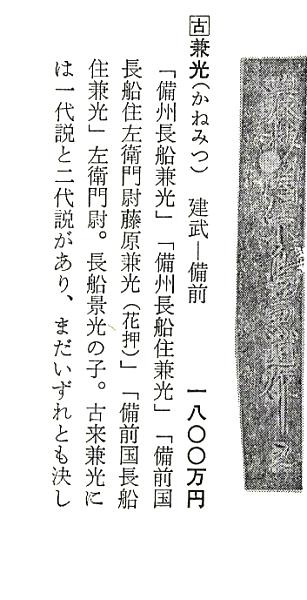 古兼光（かねみつ） 建武―備前 一八〇〇万円
「備州長船兼光」「備州長船住兼光」「備前国
長船住左衛門尉藤原兼光（花押）」「備前国長船
住兼光」左衛門尉。長船景光の子。古来兼光に
は一代説と二代説があり、まだいずれとも決し